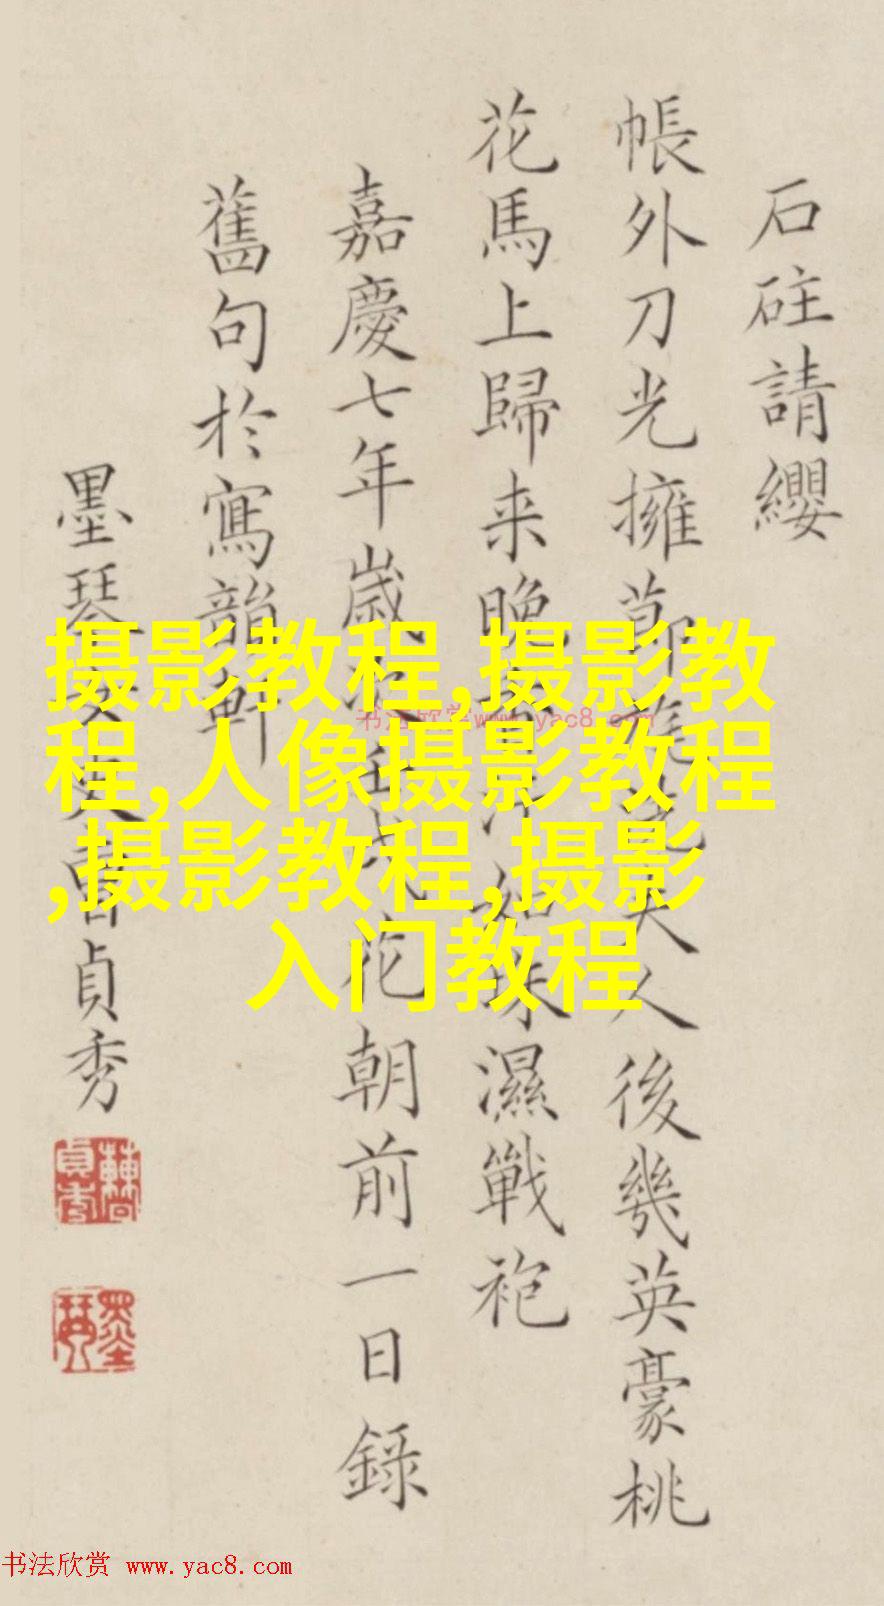 石砫請纓
帳外刀光擁節旄夫人後幾英豪桃
花馬上歸来晚汗如珠濕戰袍
嘉慶七年歲次壬戌花朝前一日錄
舊句於寫韻軒
墨琴女史曹貞秀
墨琴
摄影教程,摄影教
程,人像摄影教程
,摄影教程,摄影
入门教程
书法欣赏www.yac8.com
书法欣赏 www.yac8.com